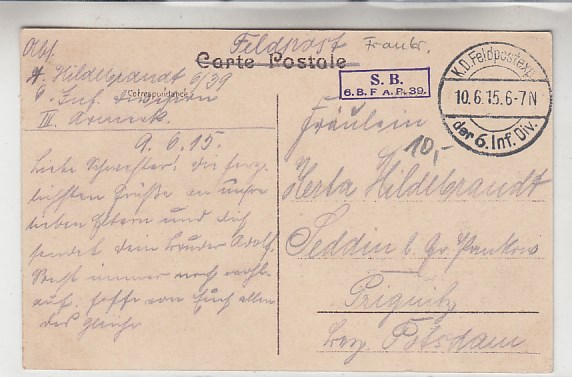 Feldpost
Frankr.
Carte Postale
Abs.
A. Hildebrandt 6/39
Correspondance
6. Inf. Division
III. Armeek.
S. B.
6. B. F. A. R. 39.
K.D. Feldpostexp.
10.6.15.6-7N
der 6. Inf. Div.
9.6.15.
Liebe Schwester! Die herz-
lichsten Grüße an unsre
lieben Eltern und dich
sendet dein Bruder Adolf.
immer noch wohl-
auf, hoffe von Euch allen
das gleiche
Fräulein
10,-
Herta Hildebrandt
Seddin b. Gr. Pankow
Prignitz
Bez. Potsdam